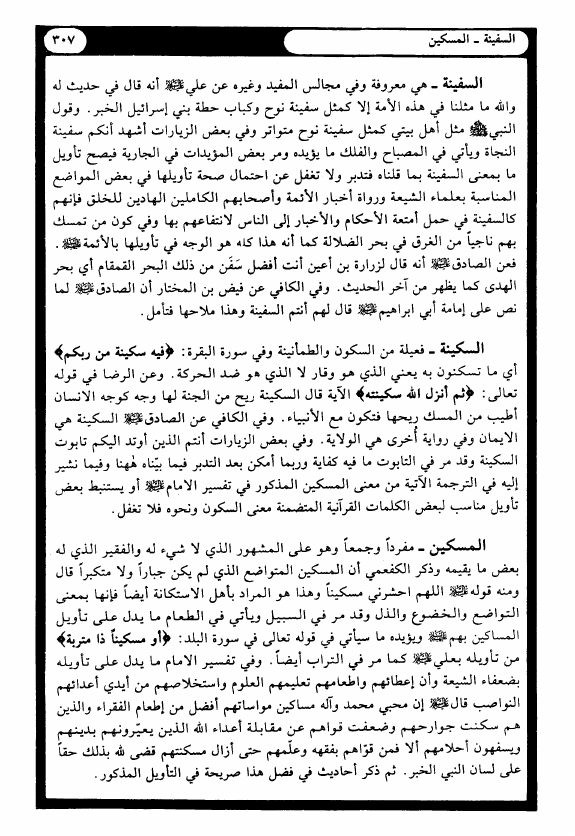 السفينة ـ المسكين
٣٠٧
السفينة ـ هي معروفة وفي مجالس المفيد وغيره عن علي ﷺ أنه قال في حديث له
والله ما مثلنا في هذه الأمة إلا كمثل سفينة نوح وكباب حطة بني إسرائيل الخبر. وقول
النبي ﷺ مثل أهل بيتي كمثل سفينة نوح متواتر وفي بعض الزيارات أشهد أنكم سفينة
النجاة ويأتي في المصباح والفلك ما يؤيده ومر بعض المؤيدات في الجارية فيصح تأويل
ما بمعنى السفينة بما قلناه فتدبر ولا تغفل عن احتمال صحة تأويلها في بعض المواضع
المناسبة بعلماء الشيعة ورواة أخبار الأئمة وأصحابهم الكاملين الهادين للخلق فإنهم
كالسفينة في حمل أمتعة الأحكام والأخبار إلى الناس لانتفاعهم بها وفي كون من تمسك
بهم ناجياً من الغرق في بحر الضلالة كما أنه هذا كله هو الوجه في تأويلها بالأئمة ﷺ.
فعن الصادق ﷺ أنه قال لزرارة بن أعين أنت أفضل سَفَن من ذلك البحر القمقام أي بحر
الهدى كما يظهر من آخر الحديث. وفي الكافي عن فيض بن المختار أن الصادق ﷺ لما
نص على إمامة أبي ابراهيم ﷺ قال لهم أنتم السفينة وهذا ملاحها فتأمل.
السكينة ـ فعيلة من السكون والطمأنينة وفي سورة البقرة: ﴿فيه سكينة من ربكم﴾
أي ما تسكنون به يعني الذي هو وقار لا الذي هو ضد الحركة. وعن الرضا في قوله
تعالى: ﴿ثم أنزل الله سكينته﴾ الآية قال السكينة ريح من الجنة لها وجه كوجه الانسان
أطيب من المسك ريحها فتكون مع الأنبياء. وفي الكافي عن الصادق ﷺ السكينة هي
الايمان وفي رواية أُخرى هي الولاية. وفي بعض الزيارات أنتم الذين أوتد اليكم تابوت
السكينة وقد مر في التابوت ما فيه كفاية وربما أمكن بعد التدبر فيما بيّناه هٰهنا وفيما نشير
إليه في الترجمة الآتية من معنى المسكين المذكور في تفسير الامام ﷺ أو يستنبط بعض
تأويل مناسب لبعض الكلمات القرآنية المتضمنة معنى السكون ونحوه فلا تغفل.
المسكين ـ مفرداً وجمعاً وهو على المشهور الذي لا شيء له والفقير الذي له
بعض ما يقيمه وذكر الكفعمي أن المسكين المتواضع الذي لم يكن جباراً ولا متكبراً قال
ومنه قوله ﷺ اللهم احشرني مسكيناً وهذا هو المراد بأهل الاستكانة أيضاً فإنها بمعنى
التواضع والخضوع والذل وقد مر في السبيل ويأتي في الطعام ما يدل على تأويل
المساكين بهم ﷺ ويؤيده ما سيأتي في قوله تعالى في سورة البلد: ﴿أو مسكيناً ذا متربة﴾
من تأويله بعلي ﷺ كما مر في التراب أيضاً. وفي تفسير الامام ما يدل على تأويله
بضعفاء الشيعة وأن إعطائهم واطعامهم تعليمهم العلوم واستخلاصهم من أيدي أعدائهم
النواصب قال ﷺ إن محبي محمد وآله مساكين مواساتهم أفضل من إطعام الفقراء والذين
هم سكنت جوارحهم وضعفت قواهم عن مقابلة أعداء الله الذين يعيّرونهم بدينهم
ويسفهون أحلامهم ألا فمن قوّاهم بفقهه وعلّمهم حتى أزال مسكنتهم قضى لله بذلك حقاً
على لسان النبي الخبر. ثم ذكر أحاديث في فضل هذا صريحة في التأويل المذكور.